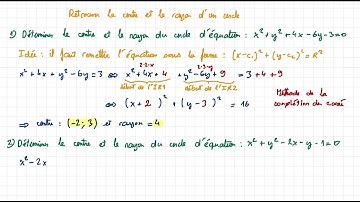 Retrouver le centre et le rayon d'un cercle
1) Déterminer le centre et le rayon du cercle d'équation : x² + y² + 4x - 6y - 3 = 0
Idée : il faut remettre l'équation sous la forme : (x - xc)² + (y - yc)² = R²
2·2·x 2·3·y
x² + 4x + y² - 6y = 3 ⇔ x² + 4x + 4 + y² - 6y + 9 = 3 + 4 + 9
début de l'IR1 début de l'IR2
⇔ (x + 2)² + (y - 3)² = 16 Méthode de la
complétion du carré
⇒ centre : (-2; 3) et rayon = 4
2) Déterminer le centre et le rayon du cercle d'équation : x² + y² - 2x - y - 1 = 0
x² - 2x